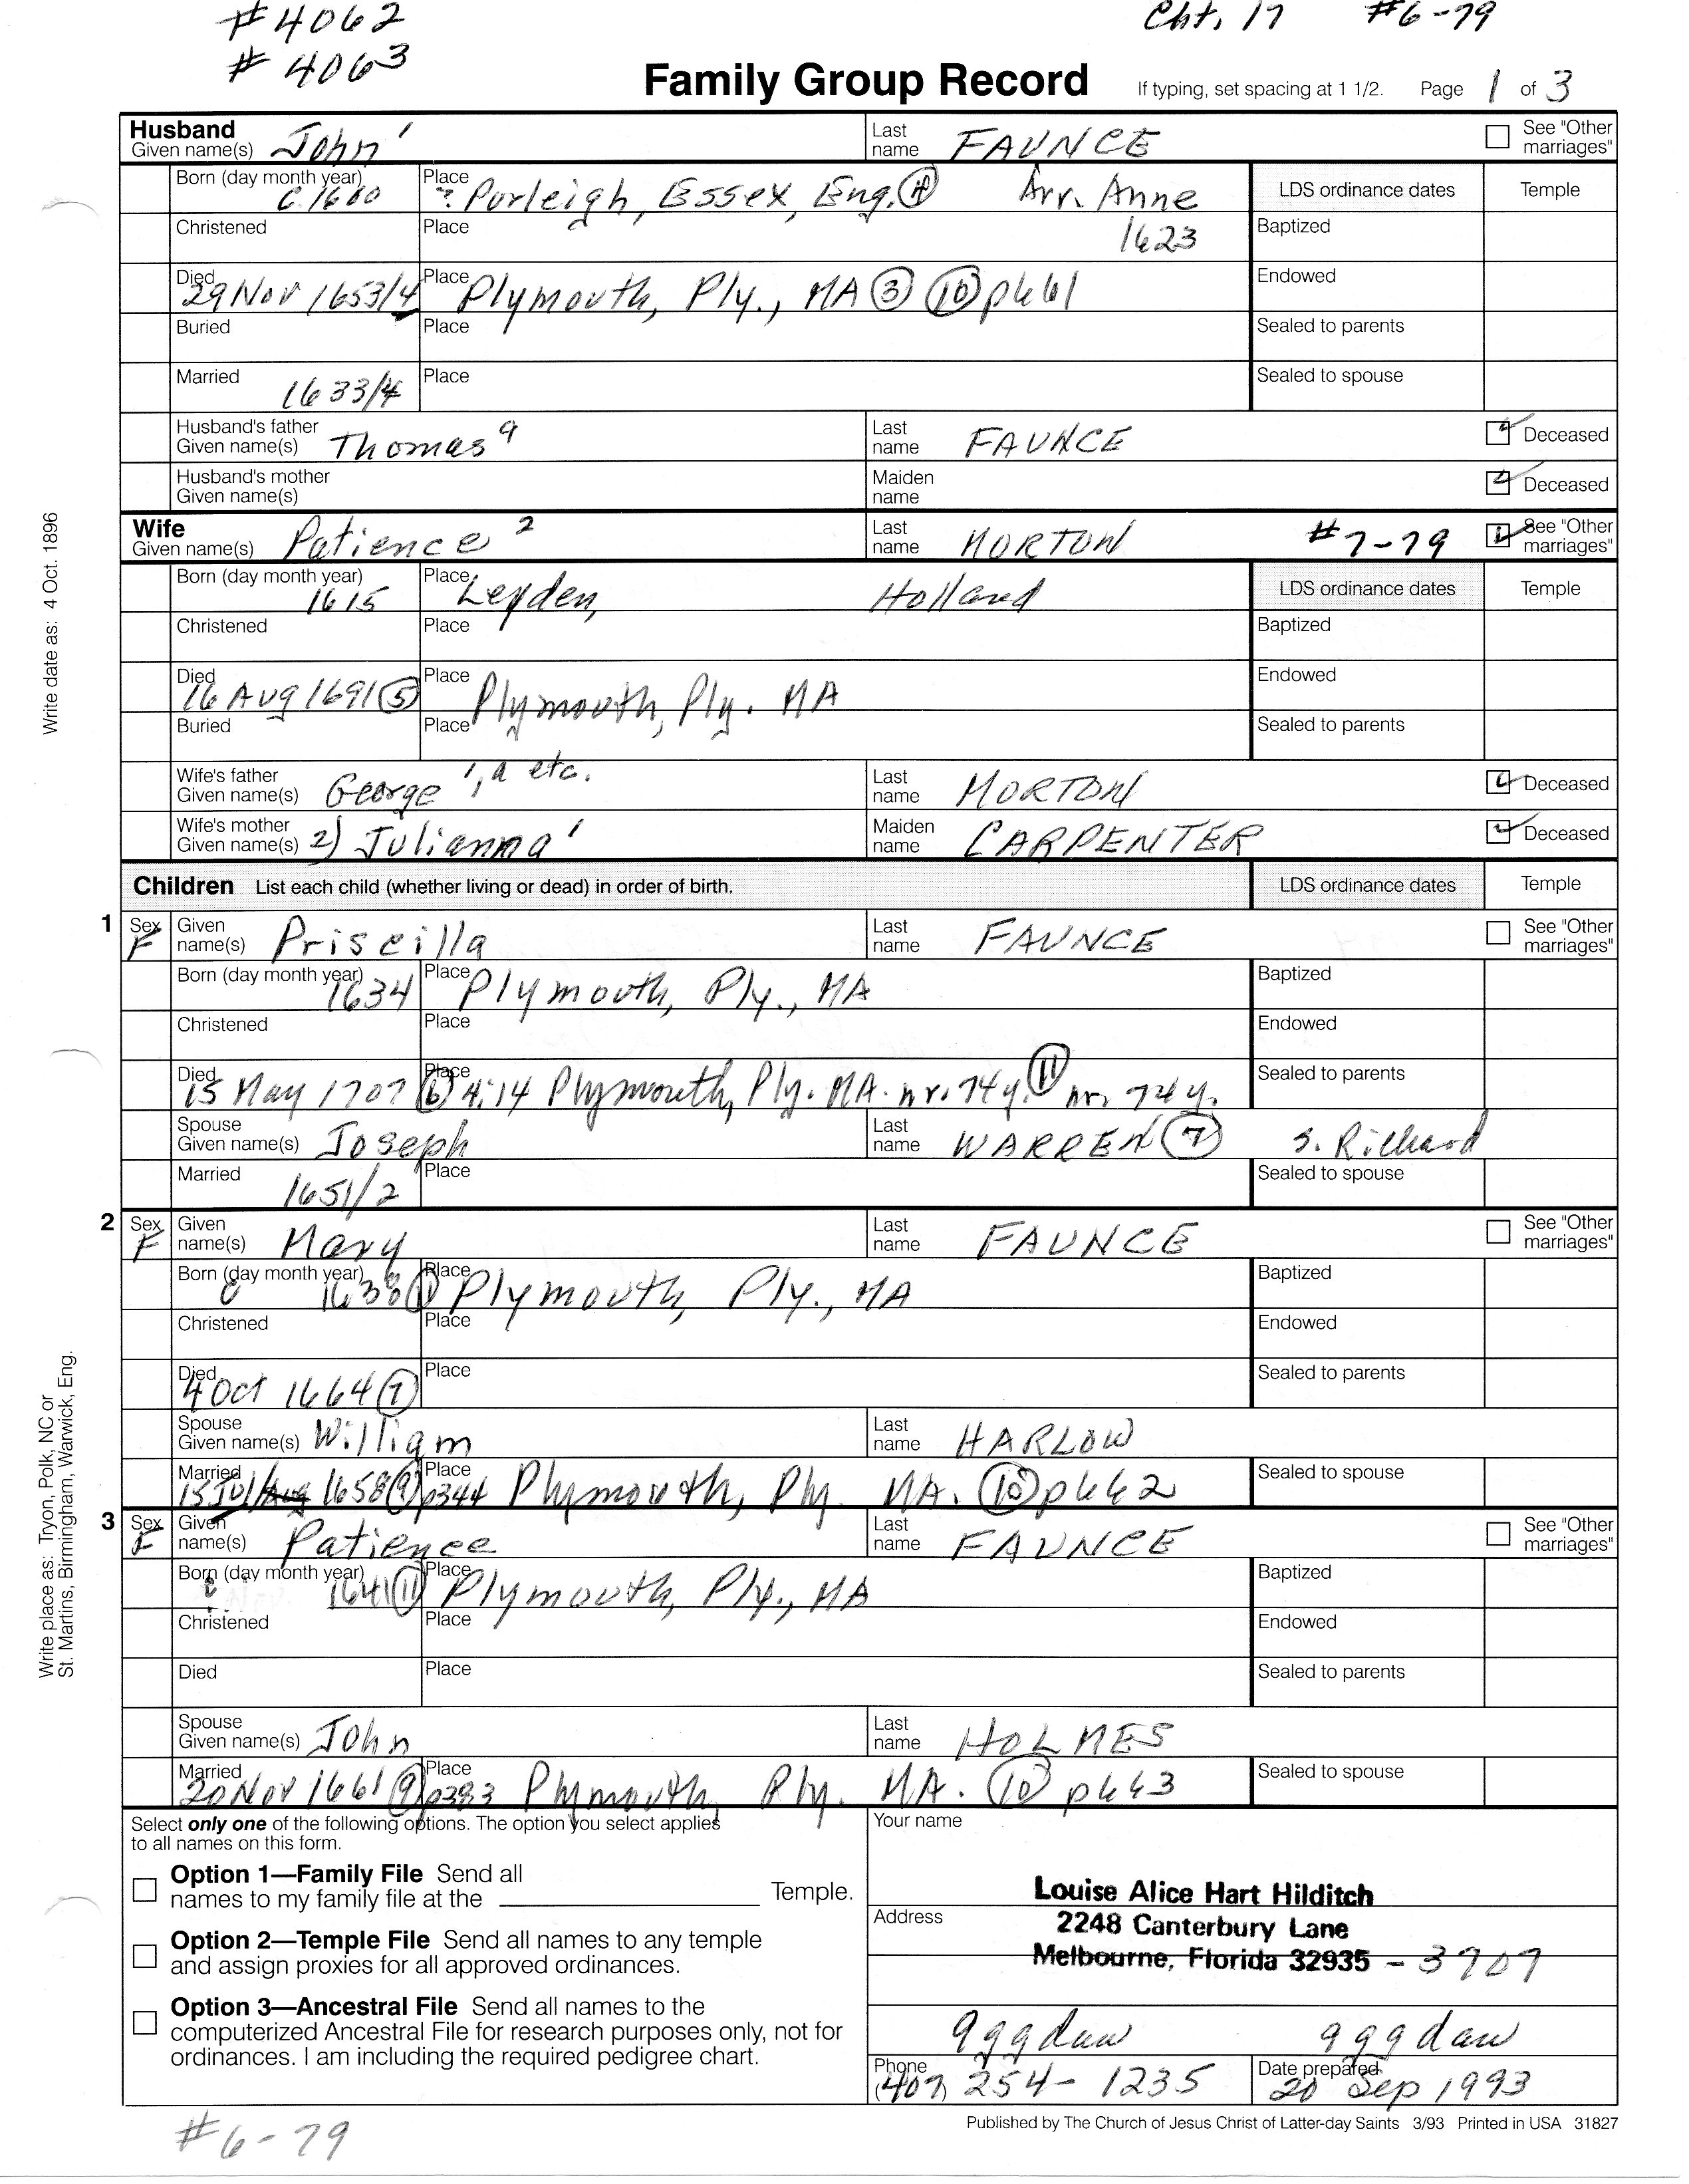 #4062
Cht. 17 #6-79
#4063
Family Group Record If typing, set spacing at 1 1/2. Page 1 of 3
Husband
Given name(s) John 1 Last name FAUNCE See "Other marriages"
Born (day month year) c 1600 Place ? Purleigh, Essex, Eng. Arr. Anne LDS ordinance dates Temple
Christened Place 1623 Baptized
Died 29 Nov 1653/4 Place Plymouth, Ply., MA (3) (10) p661 Endowed
Buried Place Sealed to parents
Married 1633/4 Place Sealed to spouse
Husband's father
Given name(s) Thomas a Last name FAUNCE Deceased
Husband's mother
Given name(s) Maiden name Deceased
Wife
Given name(s) Patience 2 Last name MORTON #7-79 See "Other marriages"
Born (day month year) 1615 Place Leyden, Holland LDS ordinance dates Temple
Christened Place Baptized
Died 16 Aug 1691 (5) Place Plymouth, Ply. MA Endowed
Buried Place Sealed to parents
Wife's father
Given name(s) George 1, a etc. Last name MORTON Deceased
Wife's mother
Given name(s) 2) Julianna 1 Maiden name CARPENTER Deceased
Children List each child (whether living or dead) in order of birth. LDS ordinance dates Temple
1 Sex F Given name(s) Priscilla Last name FAUNCE See "Other marriages"
Born (day month year) 1634 Place Plymouth, Ply., MA Baptized
Christened Place Endowed
Died 15 May 1707 (6) 4:14 Place Plymouth, Ply. MA. nr. 74y. (11) nr. 74 y. Sealed to parents
Spouse
Given name(s) Joseph Last name WARREN (7) s. Richard
Married 1651/2 Place Sealed to spouse
2 Sex F Given name(s) Mary Last name FAUNCE See "Other marriages"
Born (day month year) c 1638 (11) Place Plymouth, Ply., MA Baptized
Christened Place Endowed
Died 4 Oct 1664 (7) Place Sealed to parents
Spouse
Given name(s) William Last name HARLOW
Married 15 Jul/Aug 1658 (9) p344 Place Plymouth, Ply. MA. (10) p662 Sealed to spouse
3 Sex F Given name(s) Patience Last name FAUNCE See "Other marriages"
Born (day month year) c 1641 (11) Place Plymouth, Ply., MA Baptized
Christened Place Endowed
Died Place Sealed to parents
Spouse
Given name(s) John Last name HOLMES
Married 20 Nov 1661 (9) p393 Place Plymouth, Ply. MA. (10) p663 Sealed to spouse
Select only one of the following options. The option you select applies
to all names on this form.
Your name
Option 1—Family File Send all
names to my family file at the Temple.
Louise Alice Hart Hilditch
Address 2248 Canterbury Lane
Option 2—Temple File Send all names to any temple
and assign proxies for all approved ordinances.
Melbourne, Florida 32935 - 3707
Option 3—Ancestral File Send all names to the
computerized Ancestral File for research purposes only, not for
ordinances. I am including the required pedigree chart.
9ggdaw 9ggdaw
Phone (407) 254-1235 Date prepared 20 Sep 1993
Published by The Church of Jesus Christ of Latter-day Saints 3/93 Printed in USA 31827
#6-79
Write date as: 4 Oct. 1896
Write place as: Tryon, Polk, NC or
St. Martins, Birmingham, Warwick, Eng.